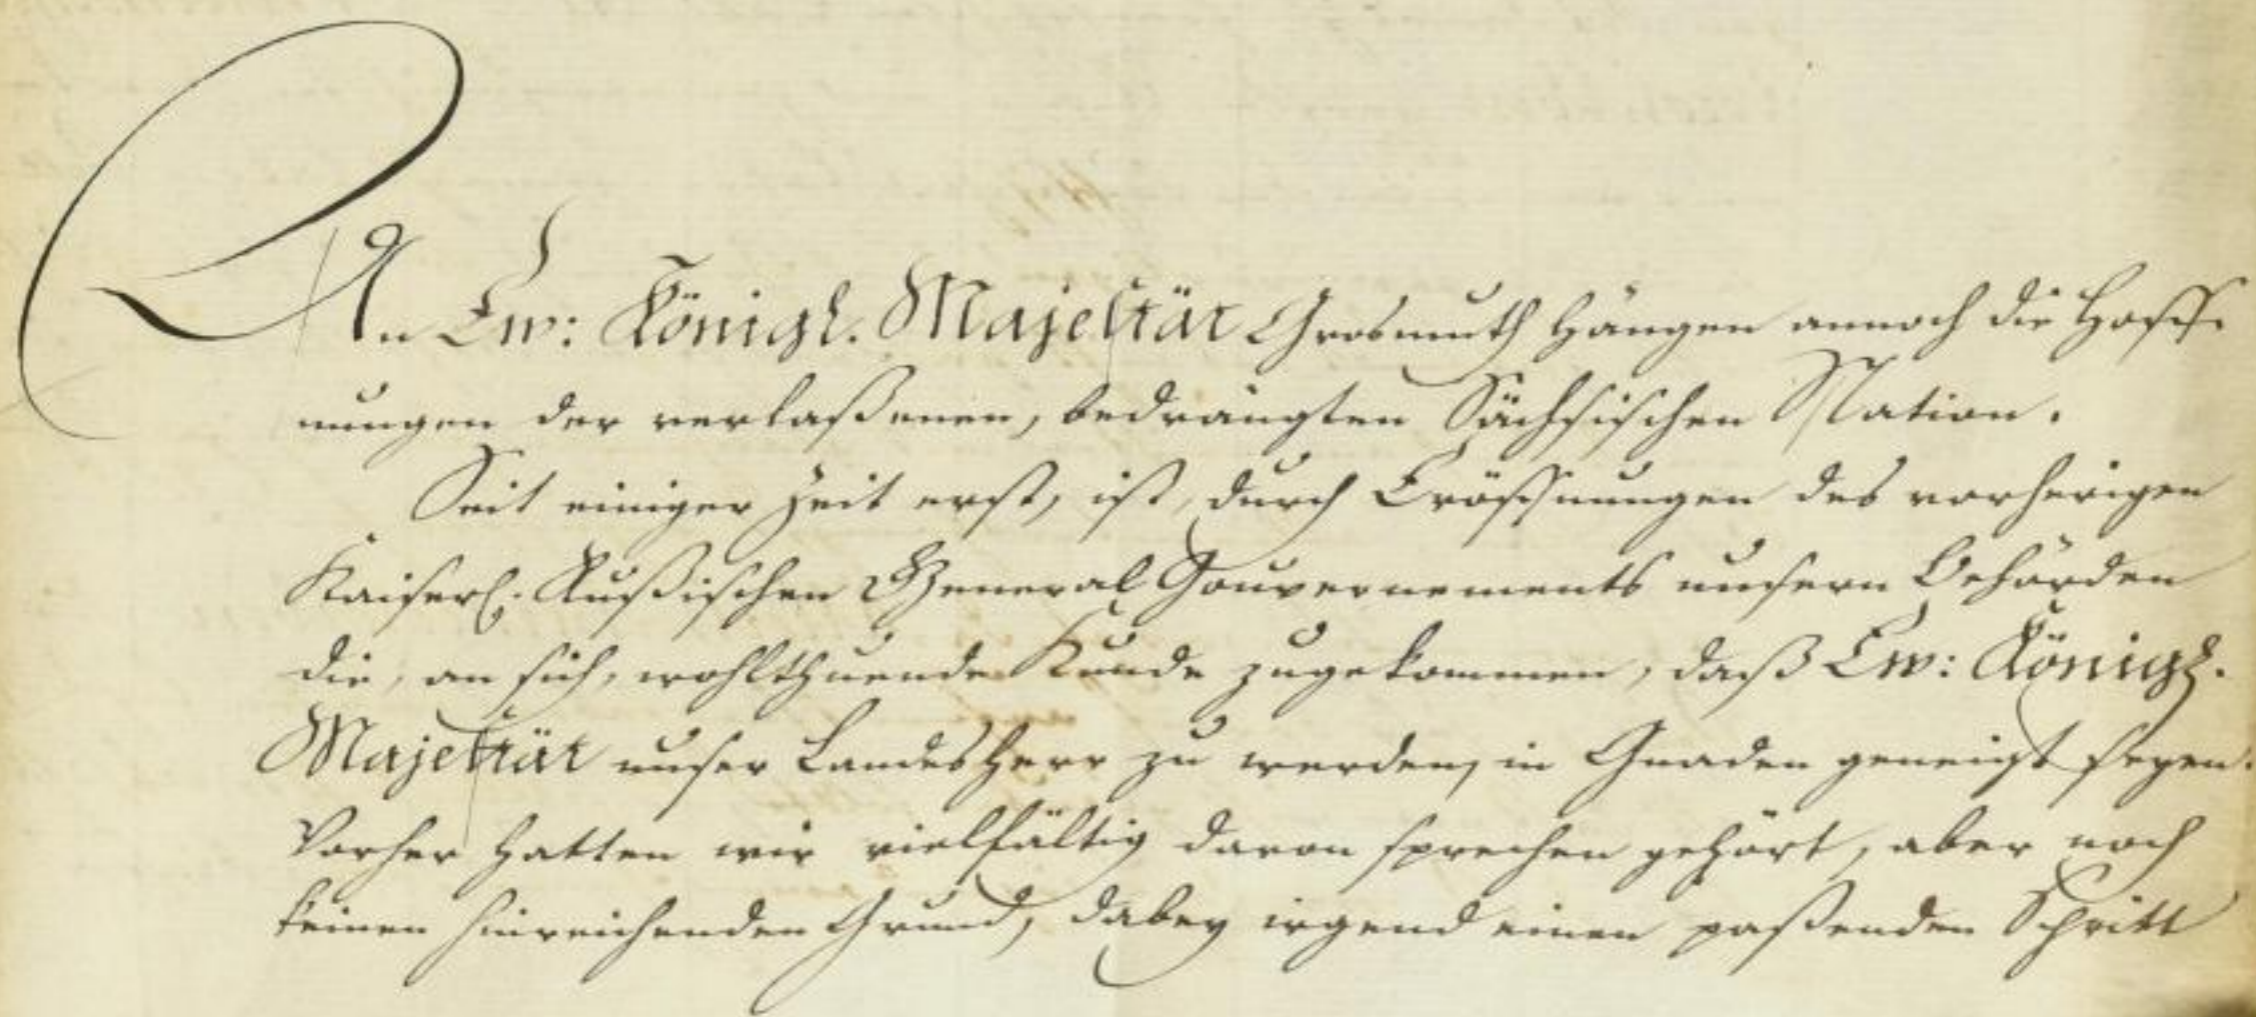 An Ew: Königl. Majestät Grosmuth hängen annoch die Hoff-
nungen der verlaßenen, bedrängten Sächsischen Nation.
Seit einiger Zeit erst, ist, durch Eröffnungen des vorherigen
Kaiserl. Rußischen General Gouvernements unsern Behörden
die, an sich, wohlthuende Kunde zugekommen, daß Ew: Königl.
Majestät unser Landesherr zu werden, in Gnaden geneigt seyen.
Vorher hatten wir vielfältig davon sprechen gehört, aber noch
keinen hinreichenden Grund, dabey irgend einen paßenden Schritt